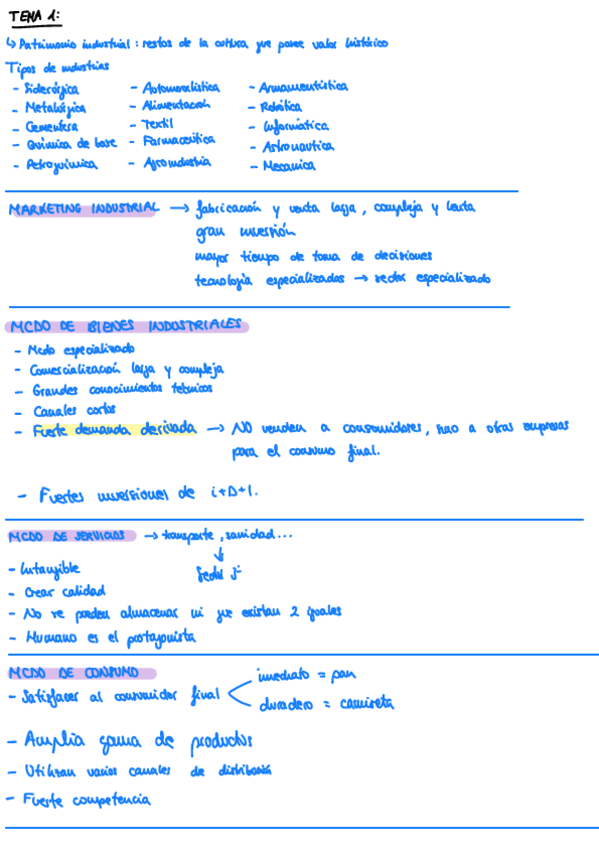 TEMA 1:
↳ Patrimonio industrial: restos de la cultura que posee valor histórico
Tipos de industrias
- Siderúrgica - Automovilística - Armamentística
- Metalúrgica - Alimentación - Robótica
- Cementera - Textil - Informática
- Química de base - Farmaceútica - Astronautica
- Petroquímica - Agroindustria - Mecanica
MARKETING INDUSTRIAL → fabricación y venta larga, compleja y lenta
gran inversión
mayor tiempo de toma de decisiones
tecnología especializados → sector especializado
MCDO DE BIENES INDUSTRIALES
- Mcdo especializado
- Comercialización larga y compleja
- Grandes conocimientos técnicos
- Canales cortos
- Fuerte demanda derivada → NO venden a consumidores, sino a otras empresas
para el consumo final.
- Fuertes inversiones de i+D+I.
MCDO DE SERVICIOS → transporte, sanidad...
- Intangible
Sector
- Crear calidad
- No se pueden almacenar ni que existan 2 iguales
- Humano es el protagonista
MCDO DE CONSUMO
inmediato = pan
- Satisfacer al consumidor final
duradero = camiseta
- Amplia gama de productos
- Utilizan varios canales de distribución
- Fuerte competencia